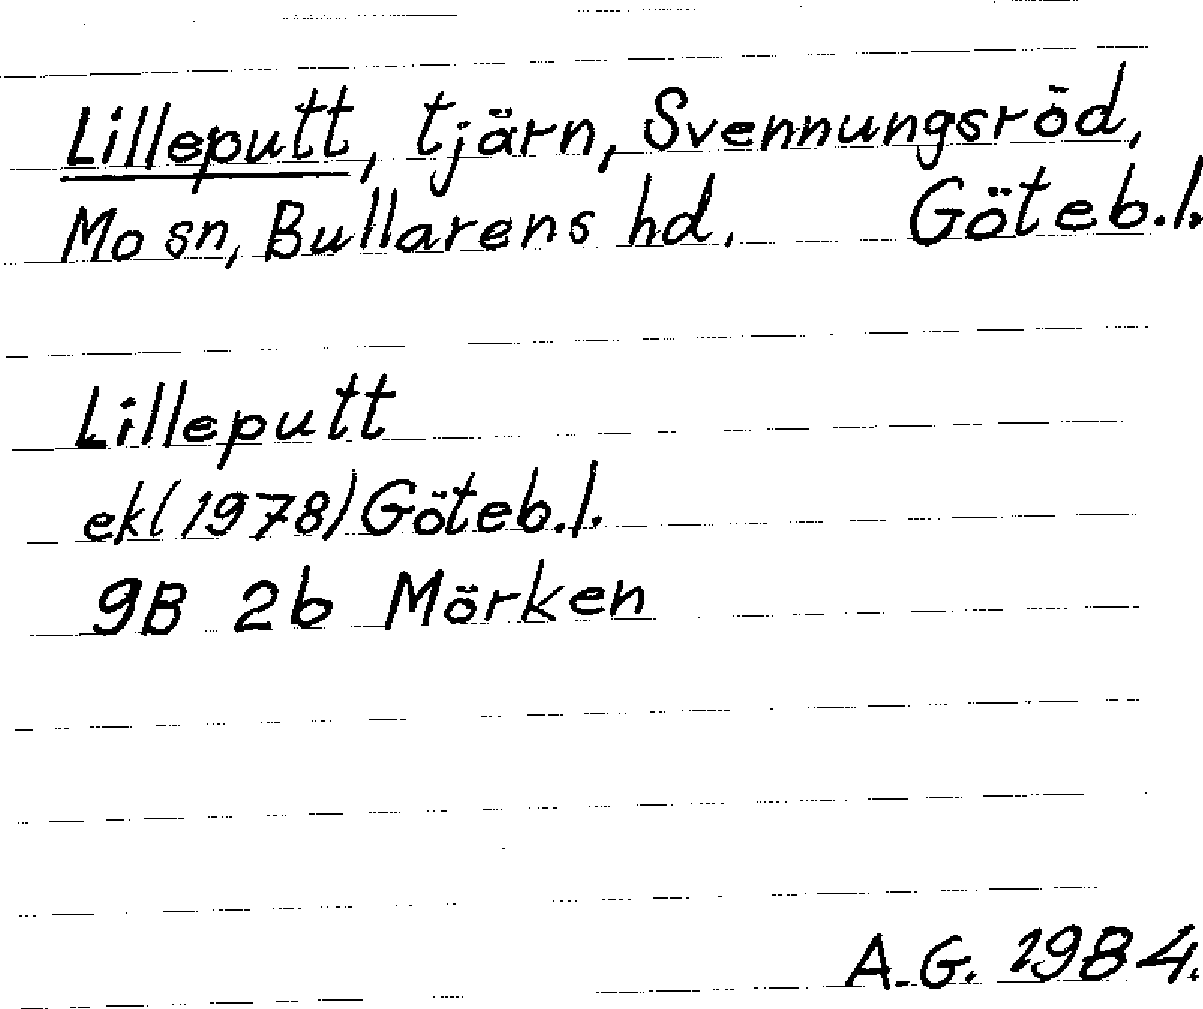 Lilleputt, tjärn, Svennungsröd,
Mo sn, Bullarens hd. Göteb.l.
Lilleputt
ekl (1978) Göteb.l.
9B 2b Mörken
A.G. 1984.